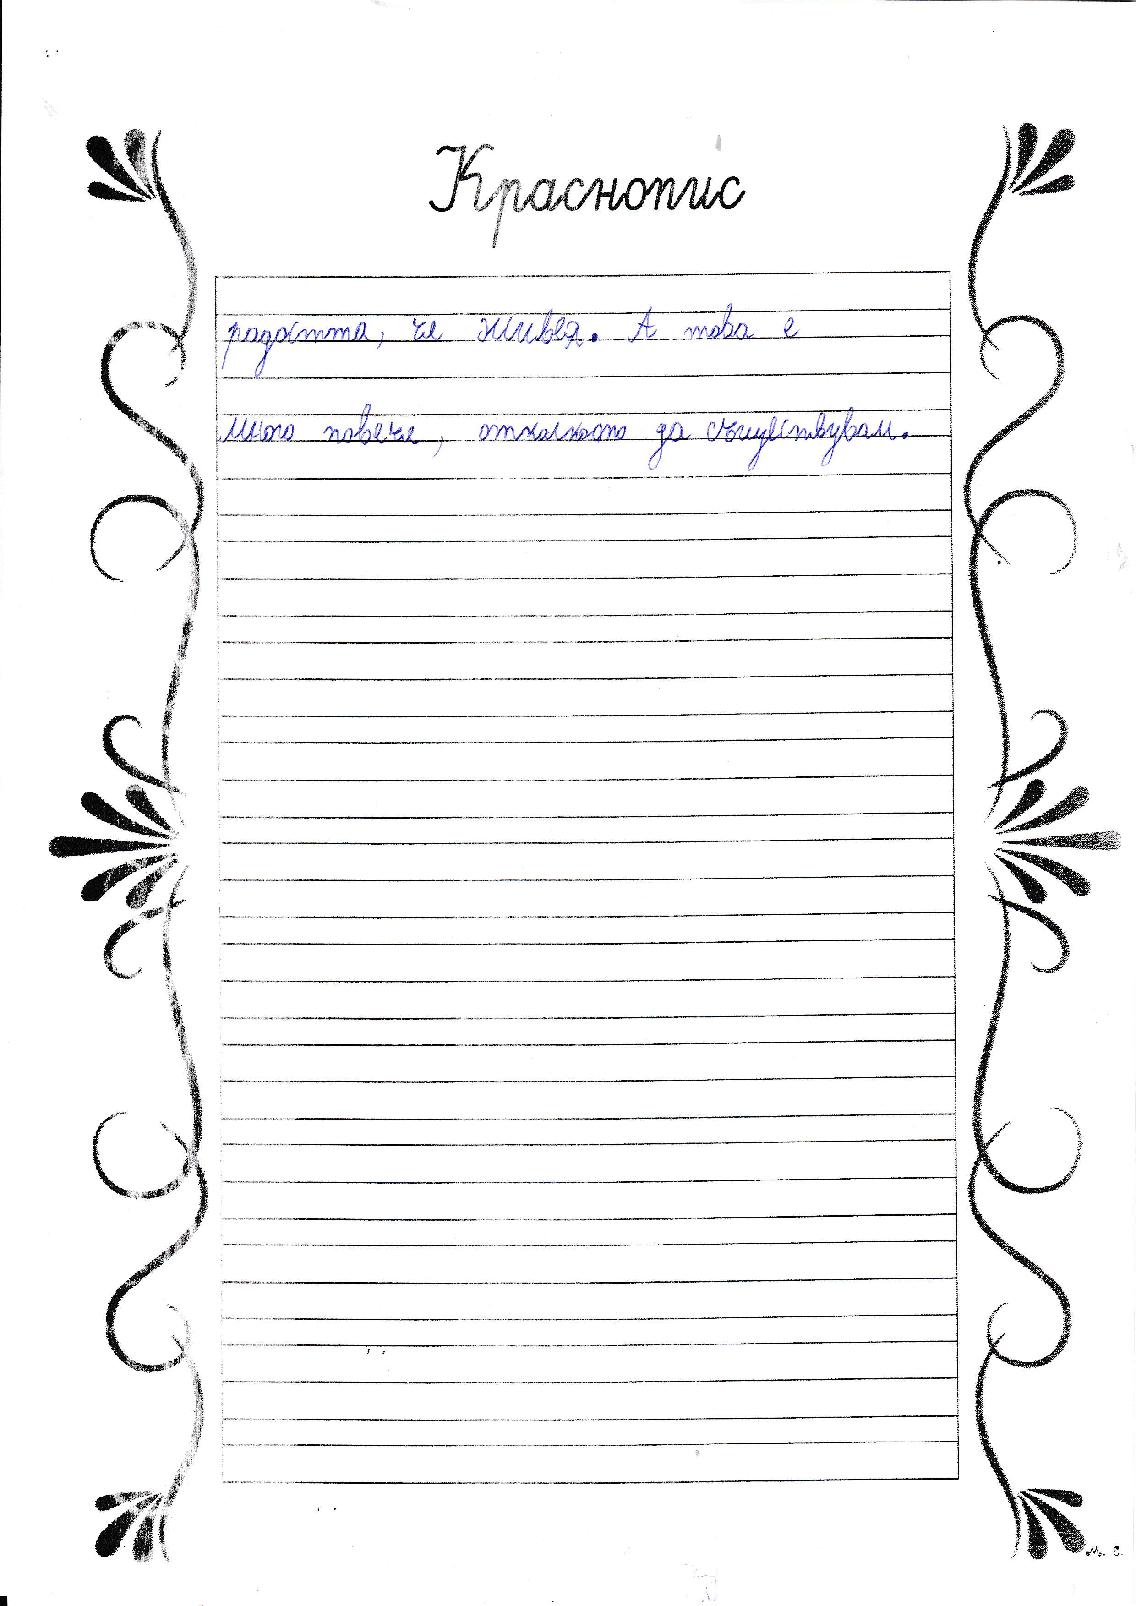 Краснопис
радостта, че живея. А това е
много повече, отколкото да съчувствувам.